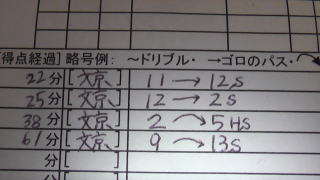 得点経過] 略号例：～ドリブル・ →ゴロのパス・⌒
22分 [文京] 11 → 12S
25分 [文京] 12 → 2S
38分 [文京] 2 ⌒ 5HS
61分 [文京] 9 ⌒ 13S
分 [ ]
分